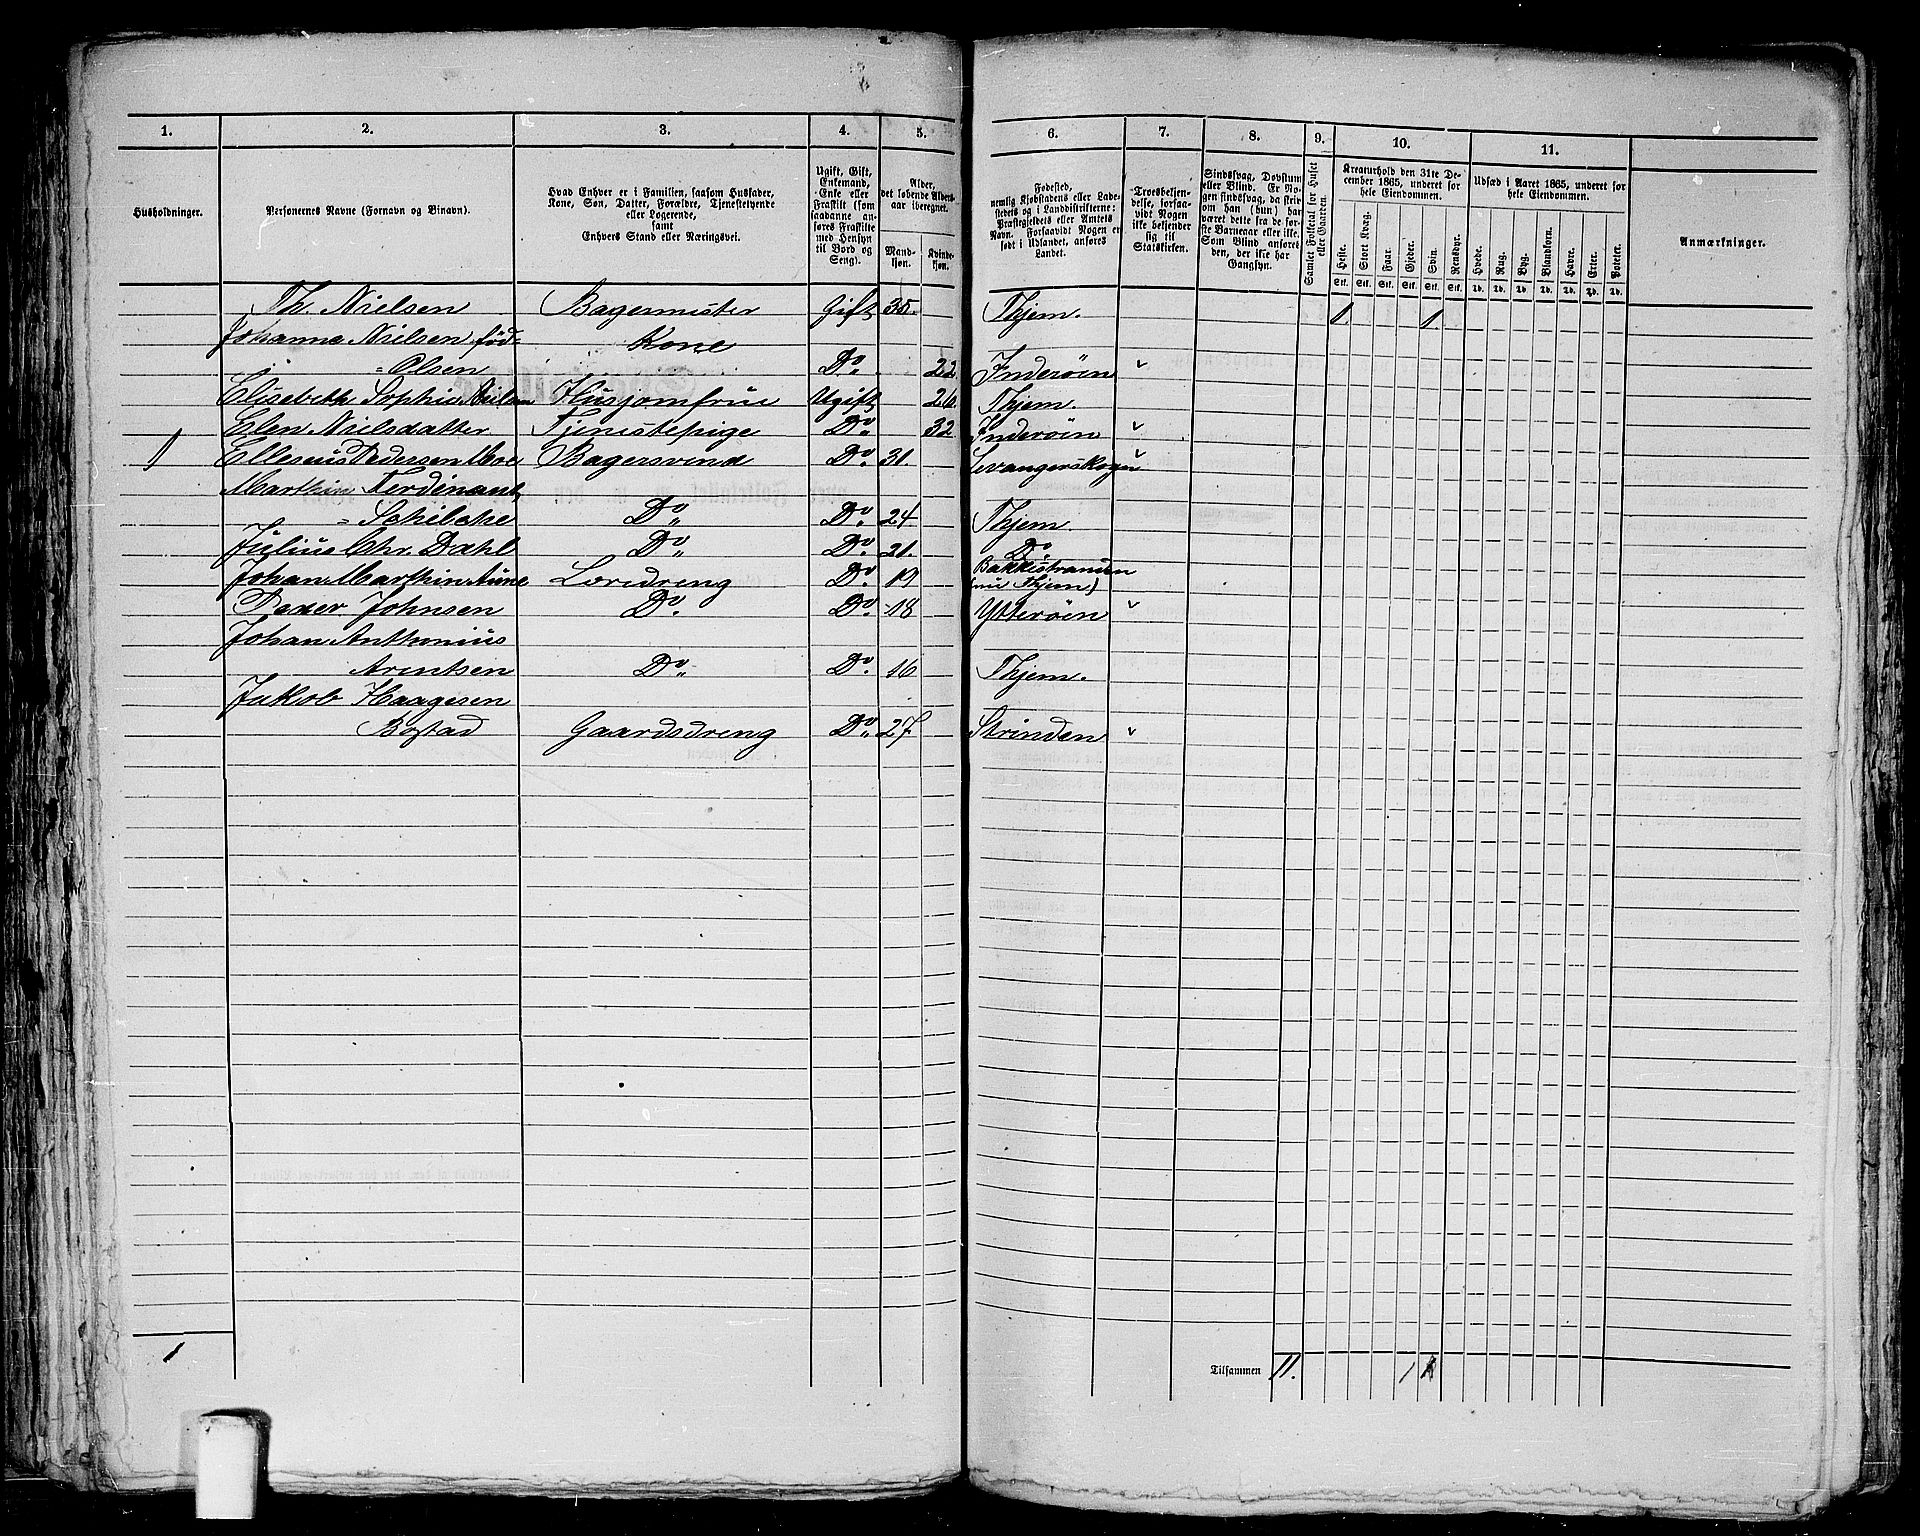 1. 2. 3. 4. 5. 6. 7. 8. 9. 10. 11.
Husholdninger.
Personernes Navne (Fornavn og Binavn).
Hvad Enhver er i Familien, saasom Husfader,
Kone, Søn, Datter, Forældre, Tjenestetyende
eller Logerende,
samt
Enhvers Stand eller Næringsvei.
Ugift, Gift,
Enkemand,
Enke eller
Fraskilt (som
saadanne an-
føres Fraskilte
med Hensyn
til Bord og
Seng).
Alder,
det løbende Alders-
aar iberegnet.
Mand-
kjøn.
Kvinde-
kjøn.
Fødested,
nemlig Kjøbstadens eller Lade-
stedets og i Landdistrikterne:
Præstegjeldets eller Amtets
Navn. Forsaavidt Nogen er
født i Udlandet, anføres
Landet.
Troesbekjen-
delse, forsaa-
vidt Nogen
ikke bekjender
sig til
Statskirken.
Sindssvag, Døvstum
eller Blind. Er No-
gen sindssvag, da skri-
ves om han (hun) har
været dette fra de før-
ste Barneaar eller ikke.
Som Blind anføres
den, der ikke har
Gangsyn.
Samlet Folketal for Huset
eller Gaarden.
Kreaturhold den 31te De-
cember 1865, underet for
hele Eiendommen.
Heste. Stort Kvæg. Faar. Gjeder. Svin. Rensdyr.
Stk. Stk. Stk. Stk. Stk. Stk.
Udsæd i Aaret 1865, underet for
hele Eiendommen.
Hvede. Rug. Byg. Blandkorn. Havre. Erter. Poteter.
Td. Td. Td. Td. Td. Td. Td.
Anmærkninger.
Th. Nielsen Bagermester Gift 35. Thjem. 1. 1.
Johanna Nielsen fød- Kone
= Olsen Do. 22 Inderøen
Elisebeth Sophie Nielsen Husjomfrue Ugift 26 Thjem.
Elen Nielsdatter Tjenestepige Do 32 Inderøen
Elleseus Pedersen Moe Bagersvend Do 31. Levangerskogn
Marthin Ferdinant
= Schilche Do Do. 24 Thjem.
Julius Chr. Dahl Do Do. 21. Do.
Johan Marthin Aune Læredreng Do. 19 Bakkestranden
(nu Thjem)
Peter Johnsen Do. Do. 18 Ytterøen
Johan Anthonius
Arentsen Do Do. 16 Thjem.
Jakob Haagesen
Bostad Gaardsdreng Do 27 Strinden
1
Tilsammen 11. 1